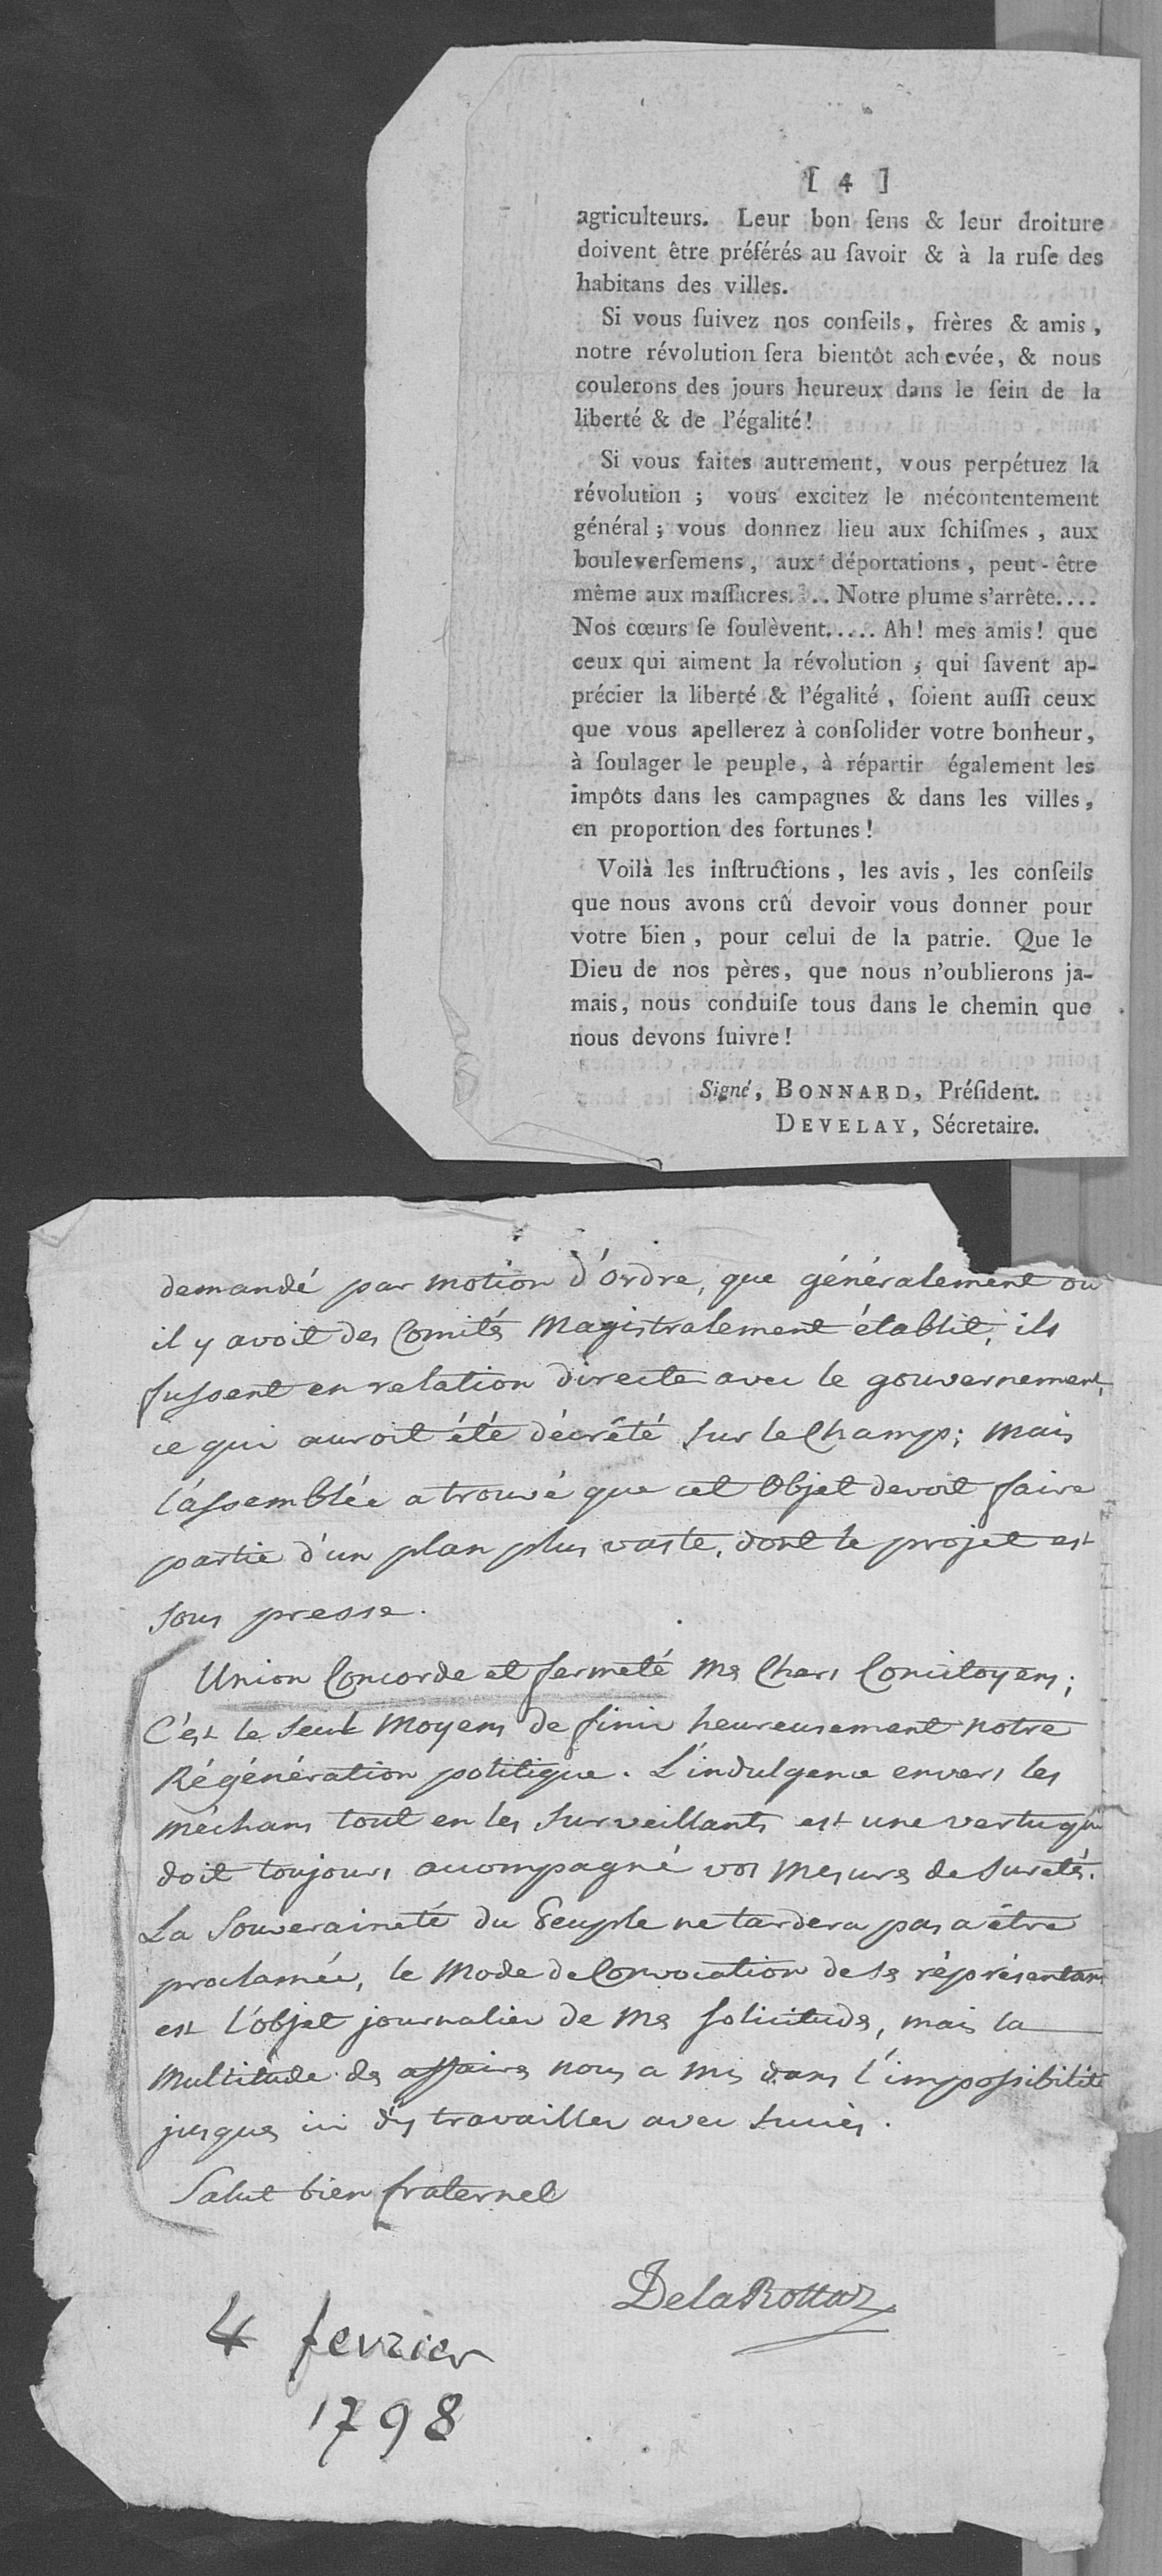 [ 4 ]
agriculteurs. Leur bon ſens & leur droiture
doivent être préférés au ſavoir & à la ruſe des
habitans des villes.
Si vous ſuivez nos conſeils, frères & amis,
notre révolution ſera bientôt achevée, & nous
coulerons des jours heureux dans le ſein de la
liberté & de l'égalité!
Si vous faites autrement, vous perpétuez la
révolution ; vous excitez le mécontentement
général ; vous donnez lieu aux ſchiſmes , aux
bouleverſemens, aux déportations, peut-être
même aux maſſacres.... Notre plume s'arrête....
Nos cœurs ſe ſoulèvent..... Ah! mes amis! que
ceux qui aiment la révolution , qui ſavent ap-
précier la liberté & l'égalité , ſoient auſſi ceux
que vous apellerez à conſolider votre bonheur,
à ſoulager le peuple, à répartir également les
impôts dans les campagnes & dans les villes,
en proportion des fortunes!
Voilà les inſtructions, les avis, les conſeils
que nous avons crû devoir vous donner pour
votre bien, pour celui de la patrie. Que le
Dieu de nos pères, que nous n'oublierons ja-
mais, nous conduiſe tous dans le chemin que
nous devons ſuivre!
Signé, BONNARD, Préſident.
DEVELAY, Sécretaire.
demandé par motion d'Ordre, que généralement ou
il y avoit des Comités Magistralement établit, ils
fussent en relation directe avec le gouvernement,
ce qui auroit été décrété sur le Champ; Mais
l'assemblée a trouvé que cet Objet devoit faire
partie d'un plan plus vaste, dont le projet est
sous presse.
Union Concorde et fermeté Mes Chers Concitoyens;
C'est le seul Moyens de finir heureusement notre
Régénération politique. L'indulgence envers les
méchans tout en les surveillants est une vertu qui
doit toujours accompagné vos Mesures de sureté.
La Souveraineté du Peuple ne tardera pas a être
proclamée, le Mode de Convocation de ses réprésentans
est l'objet journalier de Mes solicitudes, mais la
Multitude des affaires nous a mis dans l'impossibilité
jusques ici d'y travailler avec succès.
Salut bien fraternel
DelaRottaz
4 fevrier
1798